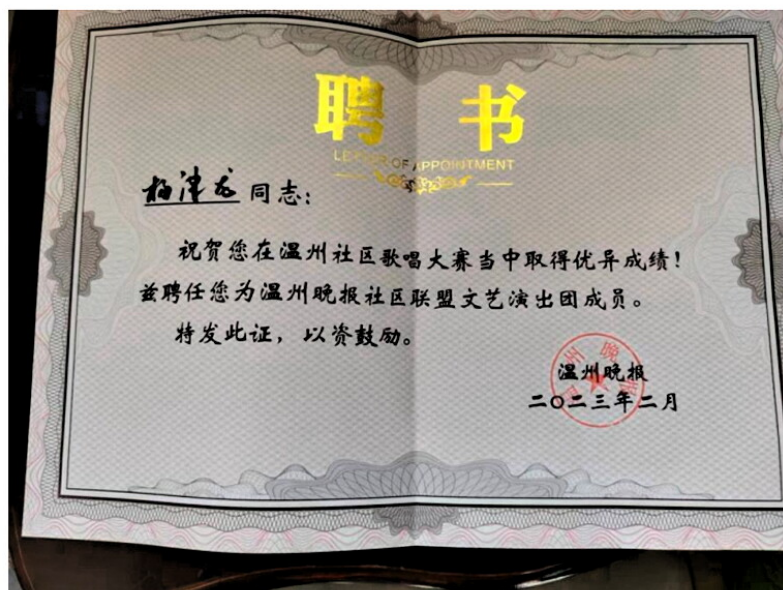 聘书
LETTER OF APPOINTMENT
同志：
祝贺您在温州社区歌唱大赛当中取得优异成绩！
兹聘任您为温州晚报社区联盟文艺演出团成员。
特发此证，以资鼓励。
温州晚报
二〇二三年二月